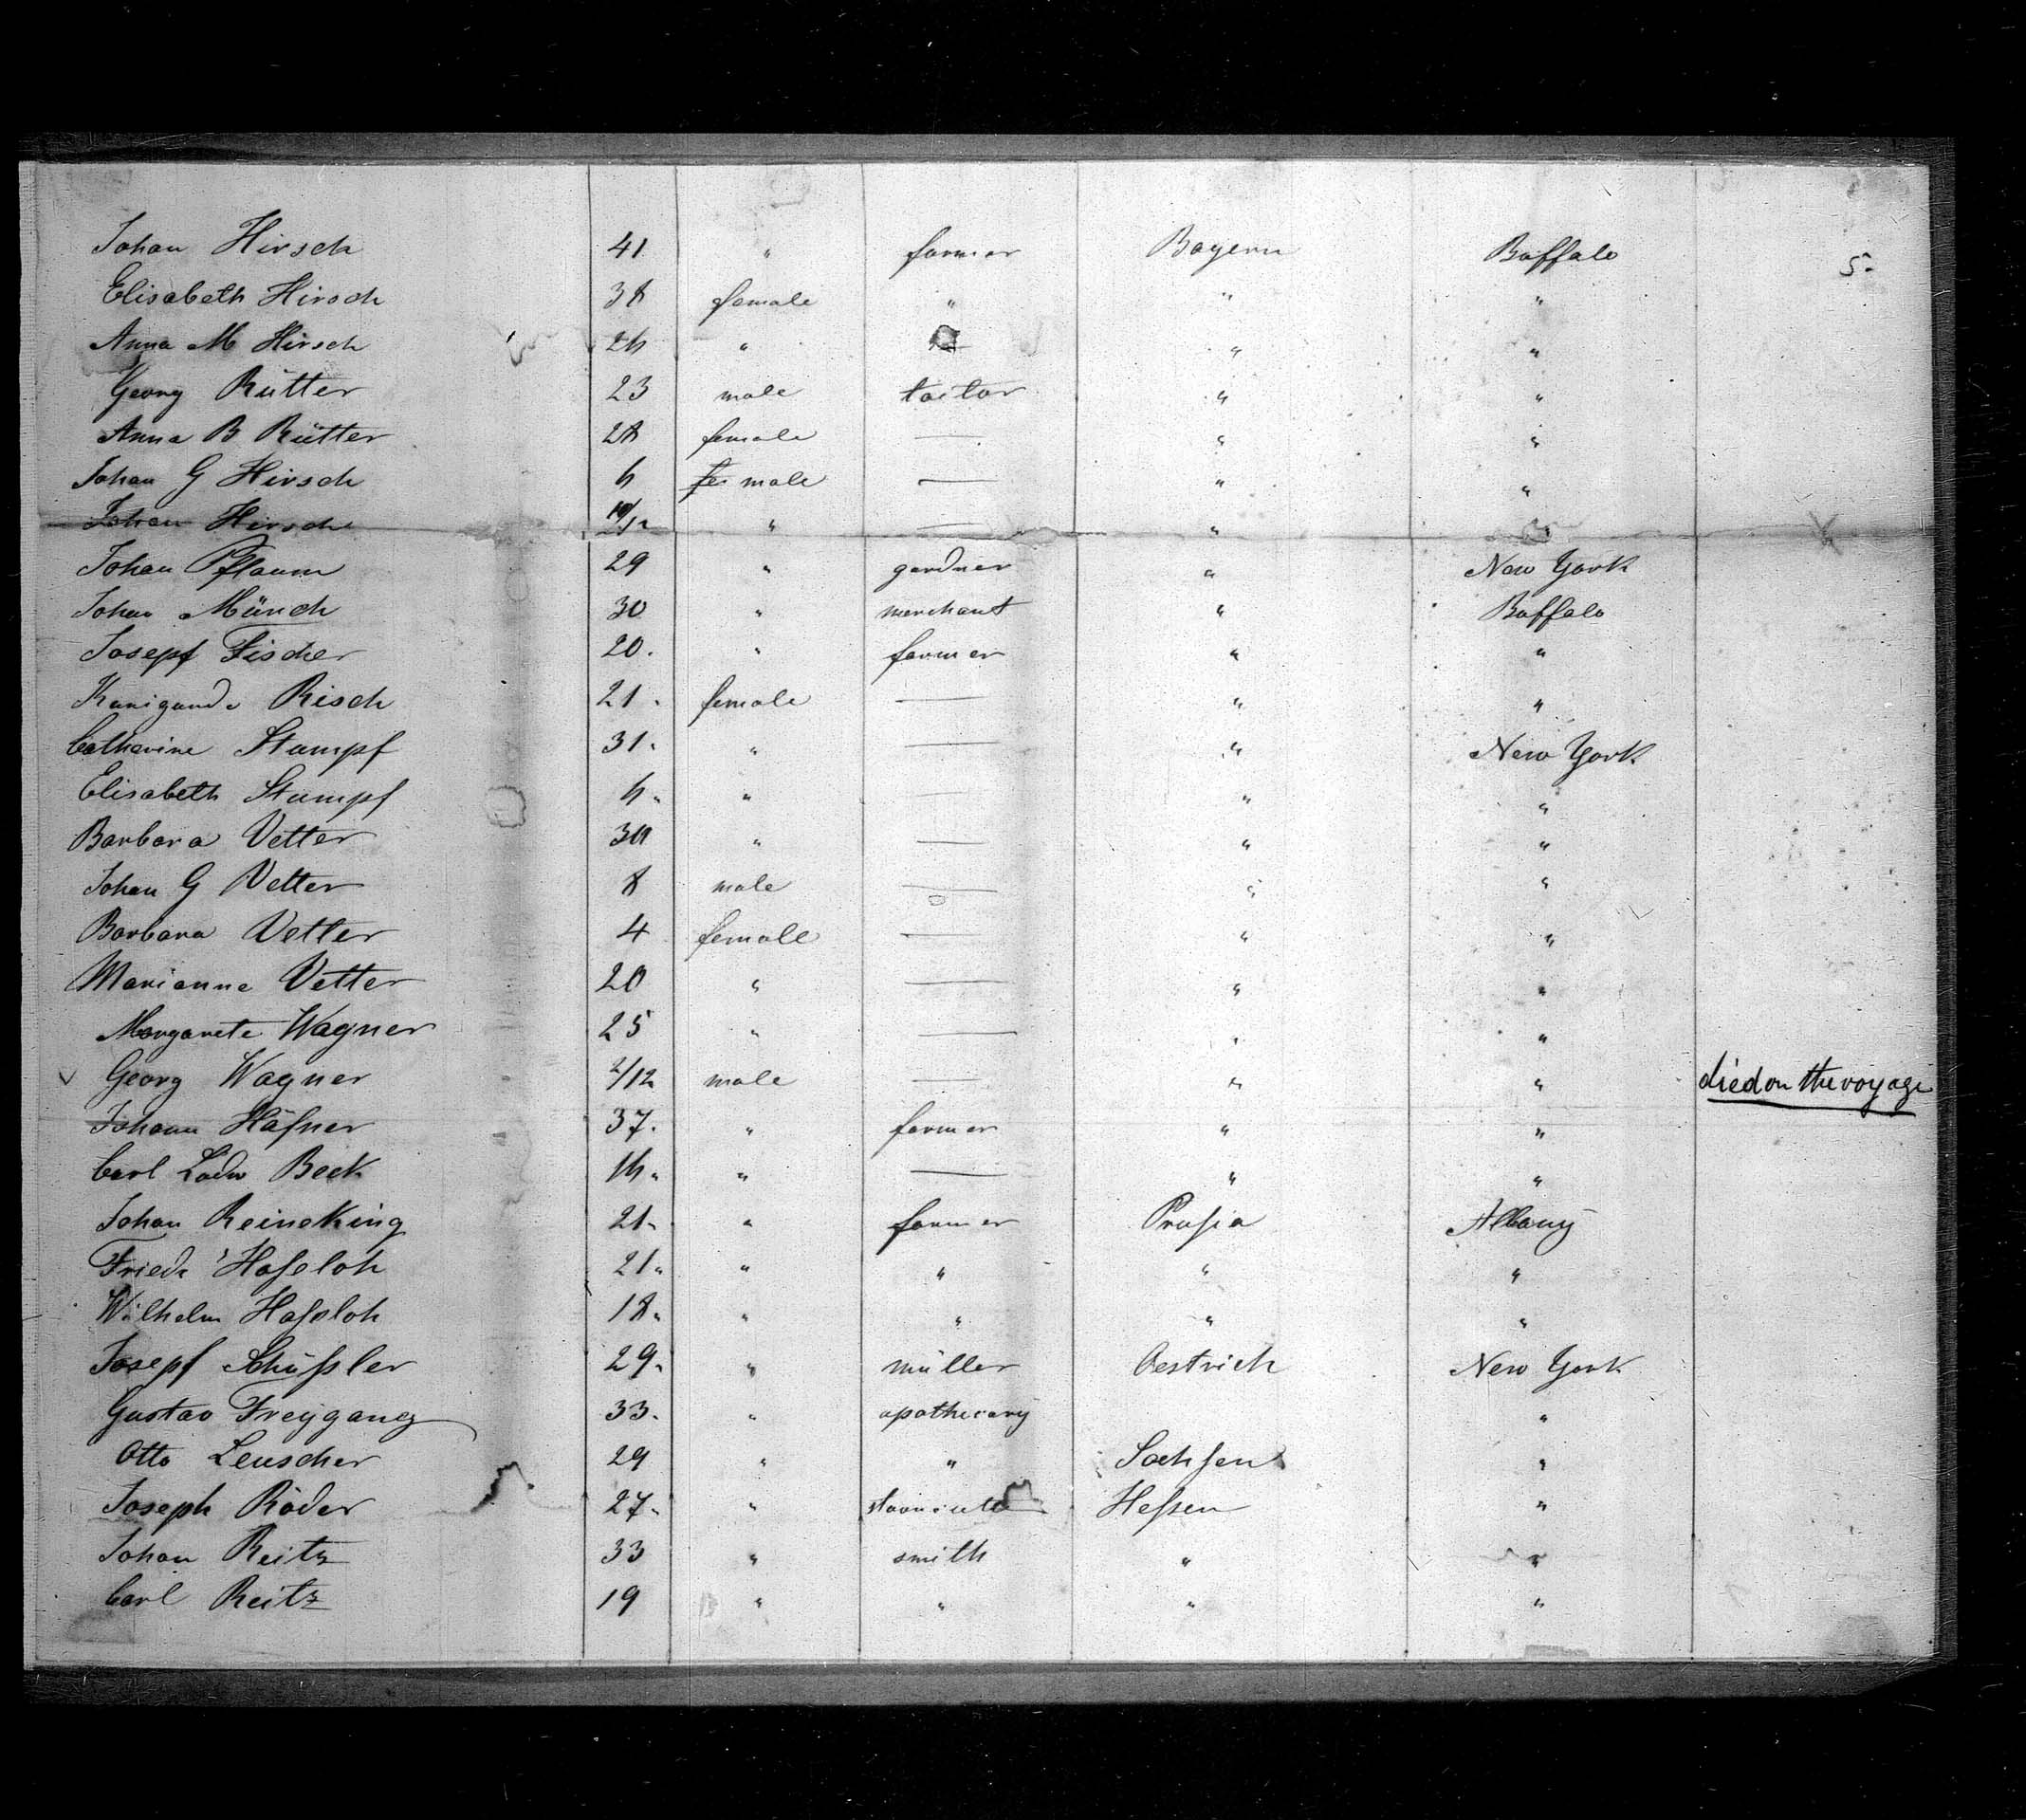 Johan Hirsch 41 " farmer Bayern Buffalo 5.
Elisabeth Hirsch 38 female " " "
Anna M Hirsch 26 " " "
Georg Rütter 23 male tailor " "
Anna B Rütter 28 female — " "
Johan G Hirsch 6 fe male — " "
Johan Hirsch 10/12 " — " "
Johan Pflaum 29 " gardner " New York
Johan Münch 30 " merchant " Buffalo
Josepf Fischer 20. " farmer " "
Kunigunde Risch 21. female — " "
Catharine Stumpf 31. " — " New York
Elisabeth Stumpf 6. " — " "
Barbara Vetter 30 " — " "
Johan G Vetter 8 male — " "
Barbara Vetter 4 female — " "
Marianne Vetter 20 " — " "
Margarete Wagner 25 " — " "
Georg Wagner 2/12 male — " " died on the voyage
Johann Häfner 37. " farmer " "
Carl Ludw Beck 16. " — " "
Johan Reineking 21. " farmer Prusia Albany
Friedr Hasseloh " " " "
Wilhelm Hassloh 18. " " " "
Josepf Schüssler 29. " müller Oestrich New York
Gustav Freygang 33. " apothecary "
Otto Leuscher 29 " " Sachsen "
Joseph Röder 27. " Hessen "
Johan Reitz 33 " smith " "
Carl Reitz 19 " " " "